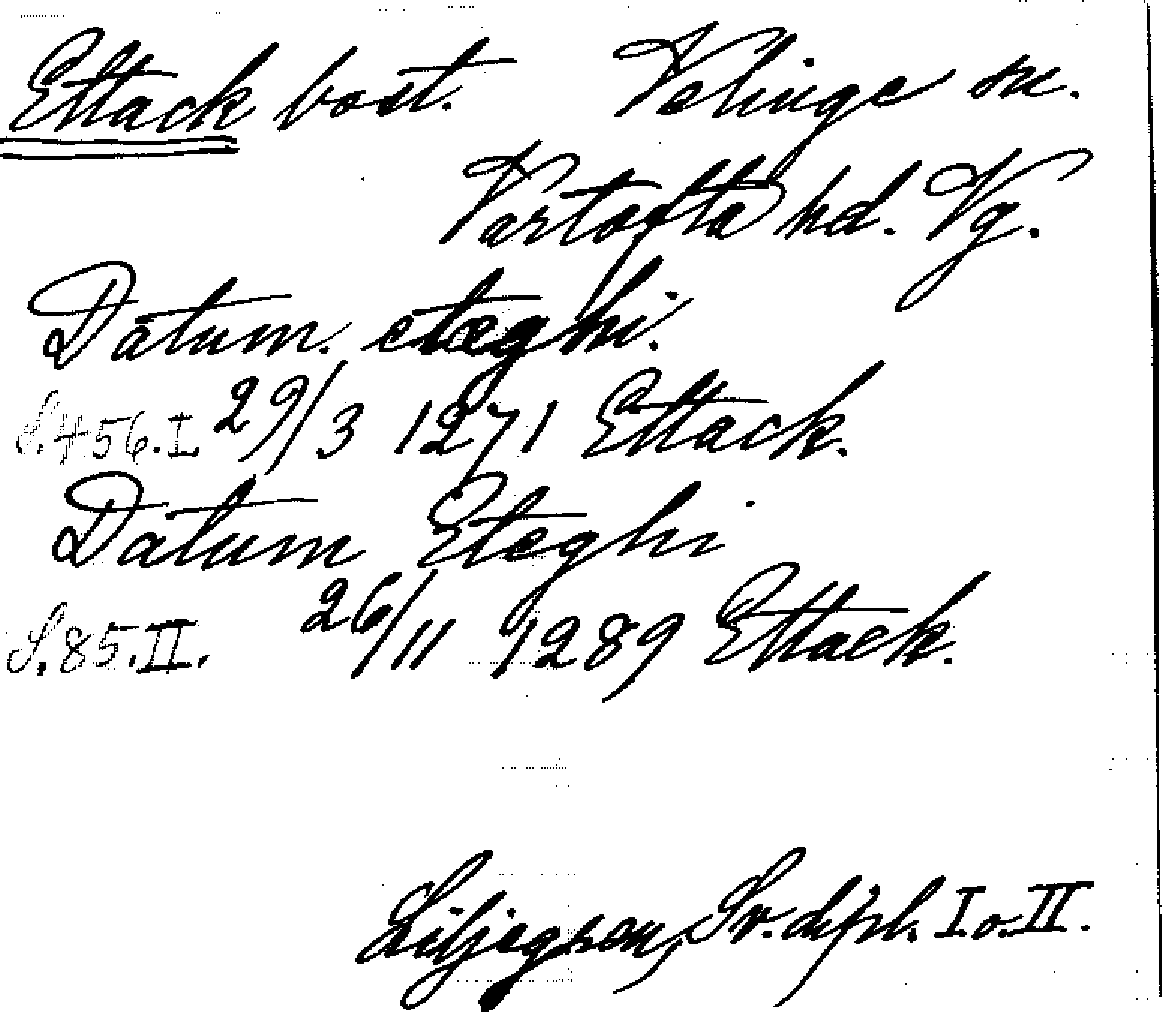 Ettack bost. Velinge sn.
Vartofta hd. Vg.
Datum. eteghi.
S.456.I. 29/3 1271 Ettack.
Datum Eteghi
S.85.II. 26/11 1289 Ettack.
Liljegren, Sv. dipl. I.o.II.